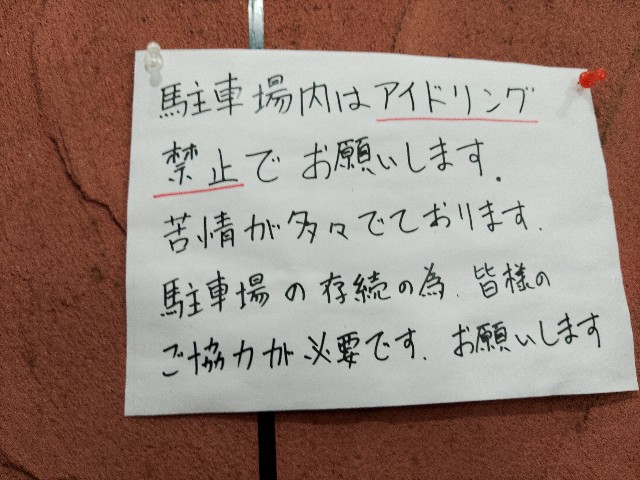 駐車場内はアイドリング
禁止でお願いします.
苦情が多々でております.
駐車場の存続の為、皆様の
ご協力が必要です、お願いします